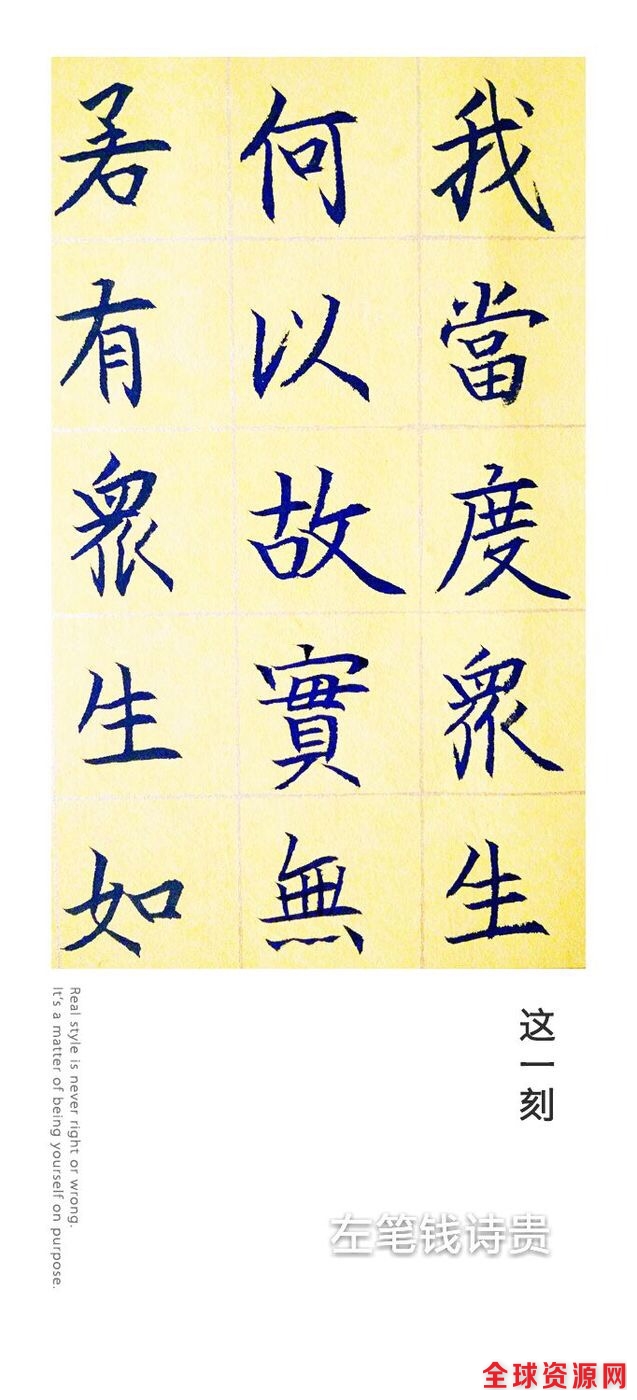 我當度眾生
何以故實無
若有眾生如
这一刻
左笔钱诗贵
Real style is never right or wrong.
It's a matter of being yourself on purpose.
全球资源网